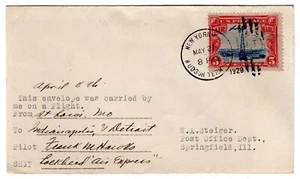 April 8th
This envelope was carried by
me on a Flight.
From St Louis, Mo
To Indianapolis & Detroit
Pilot Frank M Hawks
SHIP Lockheed "Air Express"
W.A. Steiger.
Post Office Dept.,
Springfield, Ill.
NEW YORK
MAY
1929
5 5